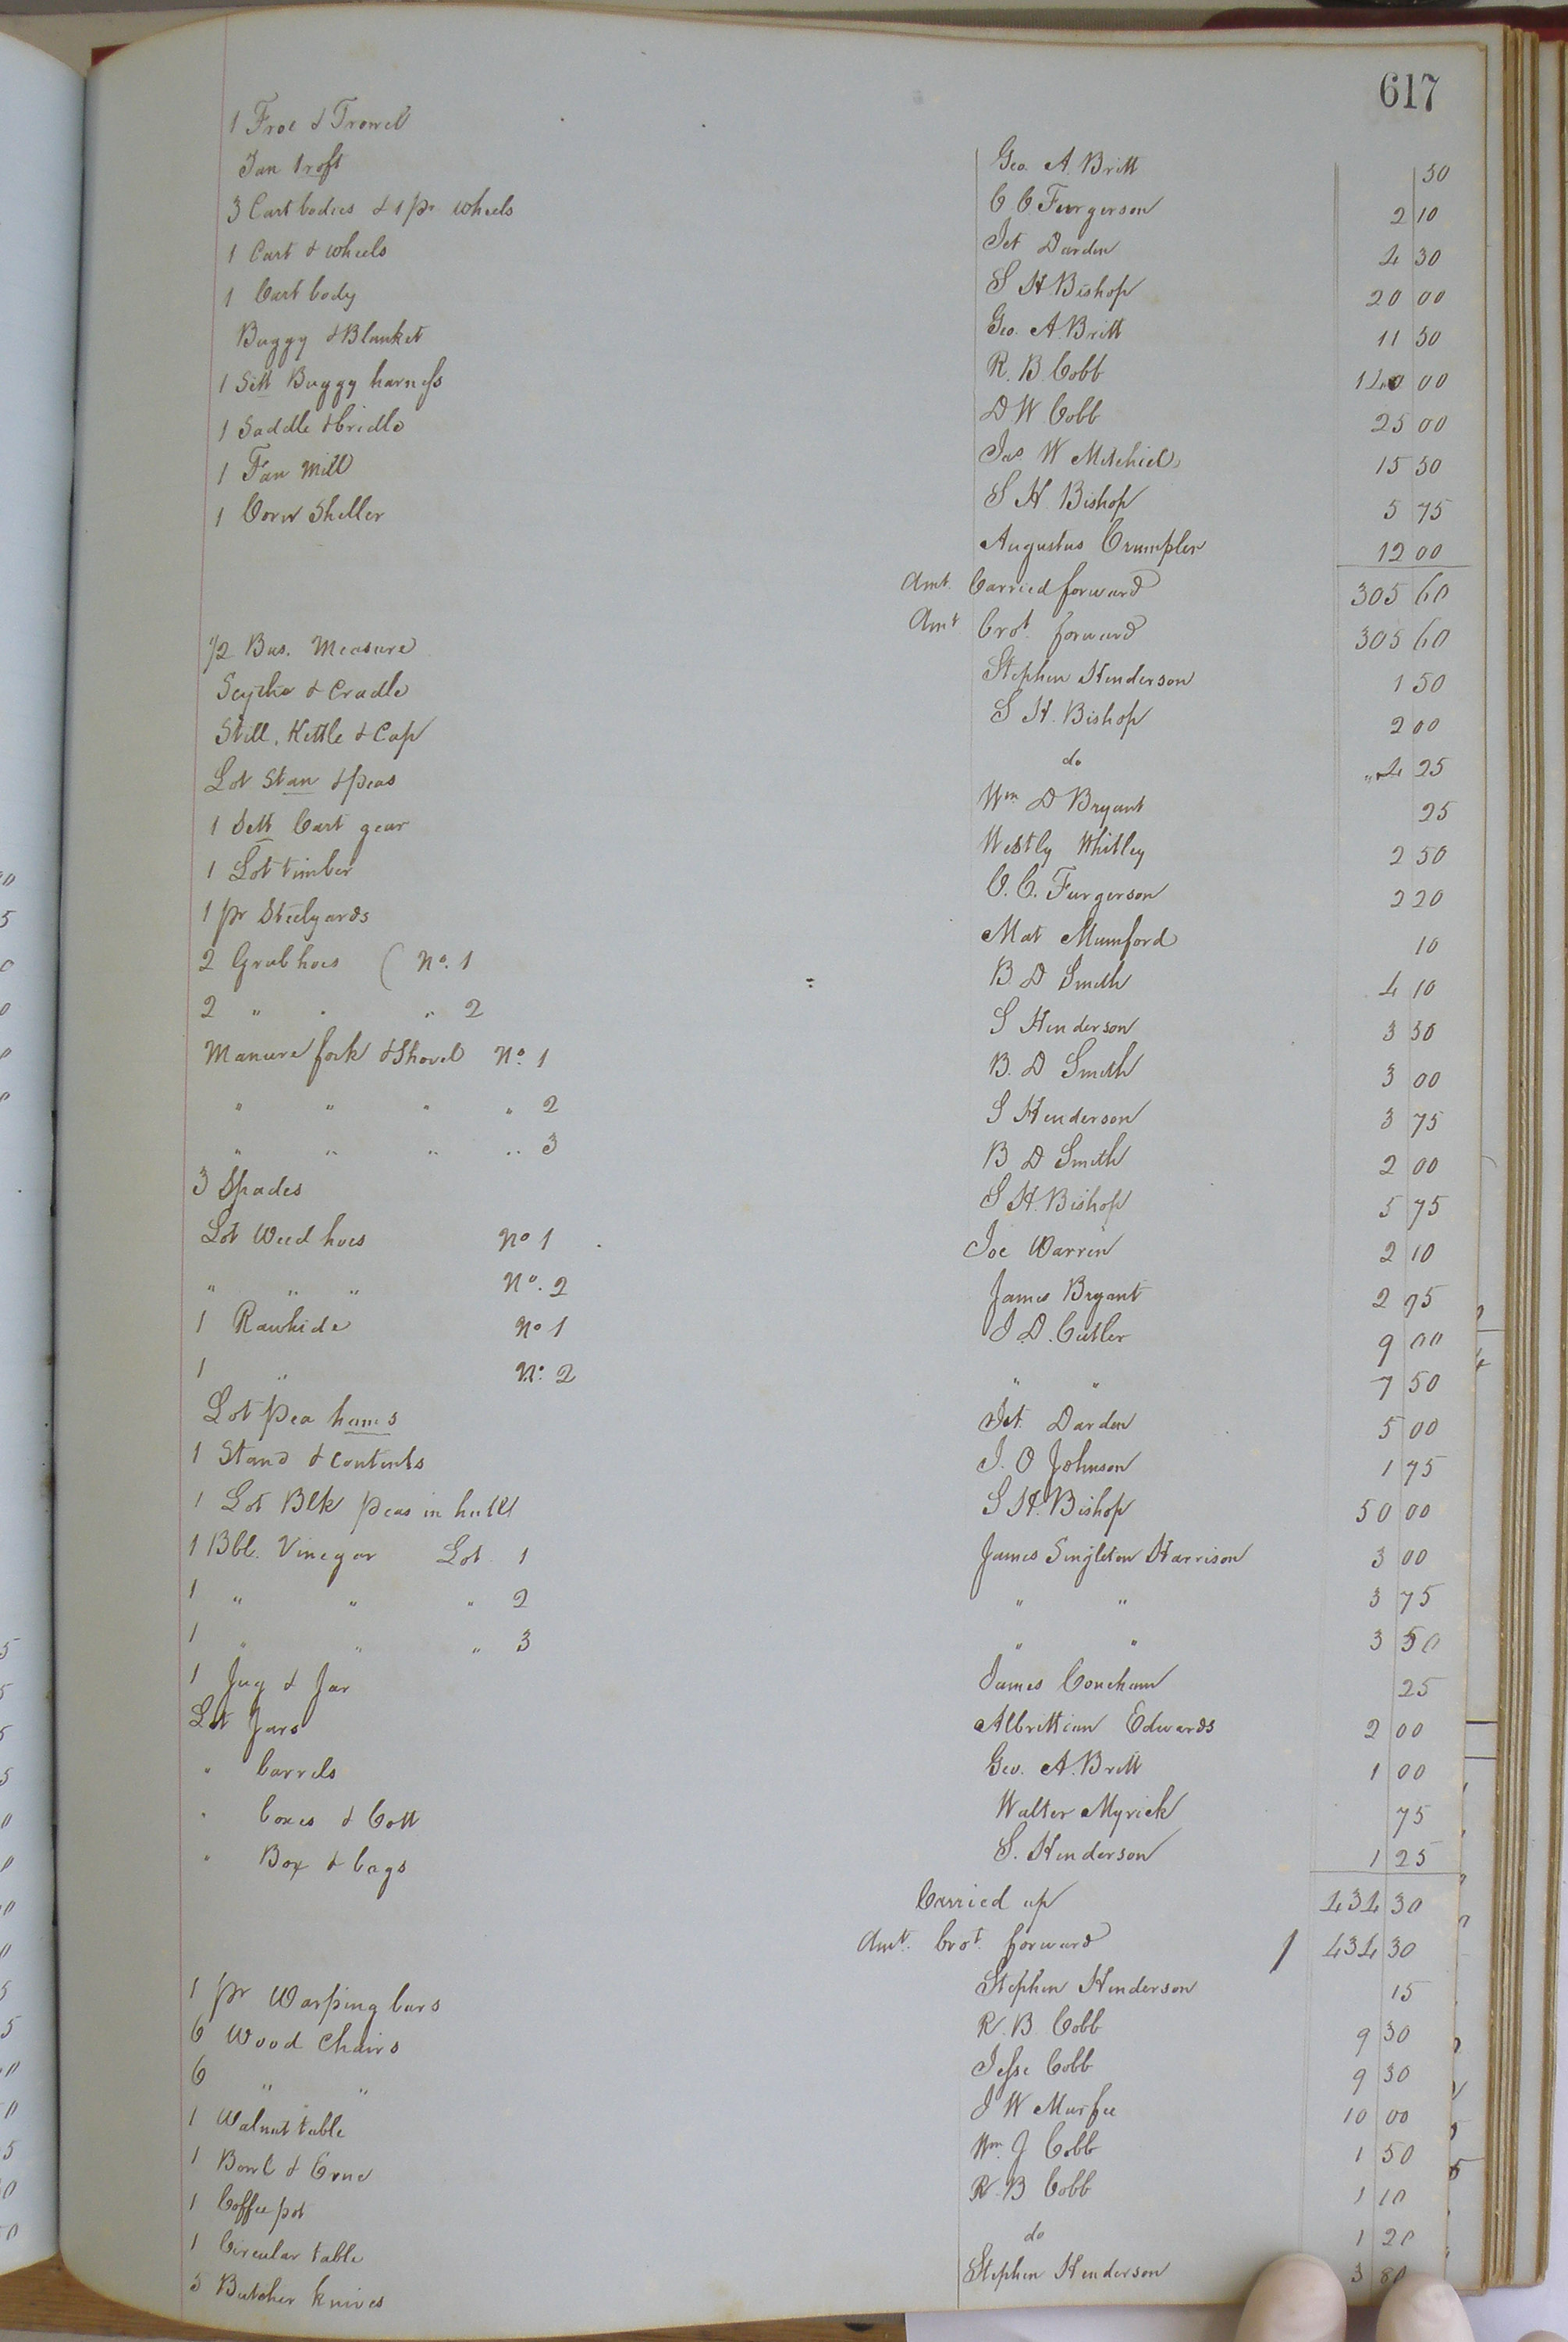 617
1 Froe & Trowel Geo. A. Britt 50
Fan troft C C Furgerson 2 10
3 Cart bodies & 1 pr wheels Jet Darden 4 30
1 Cart & wheels S H Bishop 20 00
1 Cart body Geo. A. Britt 11 50
Buggy & Blanket R. B. Cobb 140 00
1 Sett Buggy harness D W Cobb 25 00
1 Saddle & bridle Jas W Mitchiel 15 50
1 Fan Mill S H Bishop 5 75
1 Corn Sheller Augustus Crumpler 12 00
Amt. Carried forward 305 60
Amt brot. forward 305 60
1/2 Bus. Measure Stephen Henderson 1 50
Scythe & Cradle S H. Bishop 2 00
Still, Kettle & Cap do 4 25
Lot Stan & peas Wm D Bryant 25
1 Sett Cart gear Westly Whitley 2 50
1 Lot timber C. C. Furgerson 2 20
1 pr Steelyards Mat Mumford 10
2 Grub hoes ( No. 1 B. D Smith 4 10
2 " " " 2 S Henderson 3 30
Manure fork & Shovel No. 1 B. D Smith 3 00
" " " " 2 S Henderson 3 75
" " " " 3 B D Smith 2 00
3 Spades S H. Bishop 5 75
Lot Weed hoes No 1 Joe Warren 2 10
" " " No. 2 James Bryant 2 75
1 Rawhide No 1 J. D. Cutler 9 00
1 " No. 2 " " 7 50
Lot pea hams Jet. Darden 5 00
1 Stand & contents J. O Johnson 1 75
1 Lot Blk peas in hull S H. Bishop 50 00
1 Bbl. Vinegar Lot 1 James Singleton Harrison 3 00
1 " " " 2 " " 3 75
1 " " " 3 " " 3 50
1 Jug & Jar James Concham 25
Lot Jars Albrittian Edwards 2 00
" barrels Geo. A. Britt 1 00
" boxes & Cott Walter Myrick 75
" Box & bags S. Henderson 1 25
Carried up 434 30
Amt. brot. forward 434 30
1 pr Warping bars Stephen Henderson 15
6 Wood Chairs R. B. Cobb 9 30
6 " " Jesse Cobb 9 30
1 Walnut table J W Murfee 10 00
1 Bowl & Wm. J Cobb 1 50
1 Coffee pot R. B Cobb 1 10
1 Circular table do 1 20
5 Butcher knives Stephen Henderson 3 80